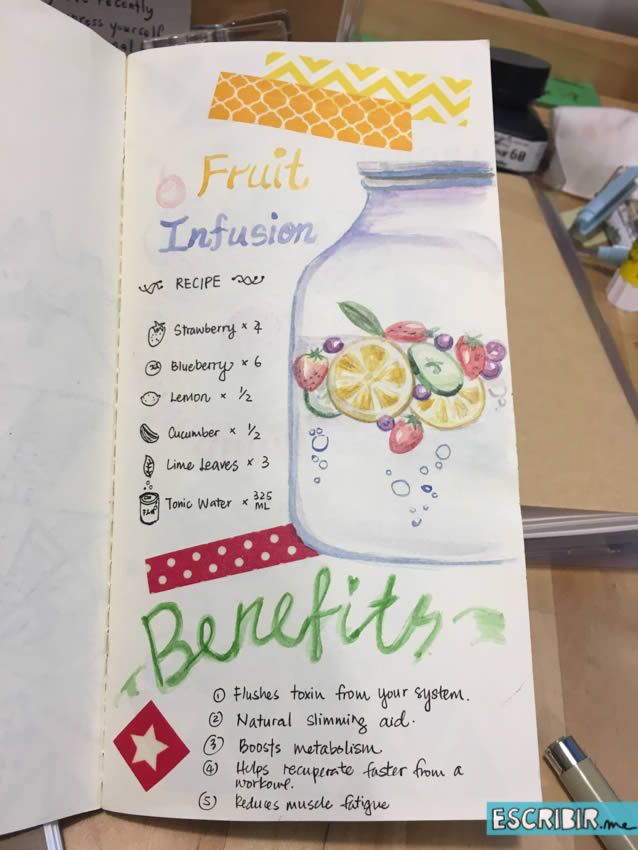 recently
press yourself
Fruit
Infusion
RECIPE
Strawberry ×
Blueberry × 6
Lemon × 1/2
Cucumber × 1/2
Lime Leaves × 3
Tonic Water × 325 ML
Benefits
① Flushes toxin from your system.
② Natural slimming aid.
③ Boosts metabolism
④ Helps recuperate faster from a
workout.
⑤ Reduces muscle fatigue
ESCRIBIR.me